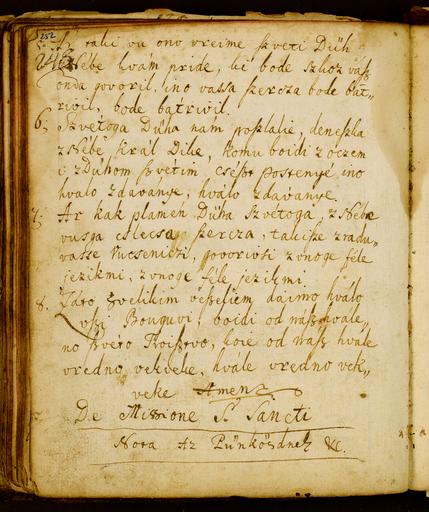 252
5. taki vu ono vreime szveti Düh
z Nébe kvam pride, ki bode szkoz vász
onda govoril, ino vassa szercza bode bat„
rivil, bode batrivil.
6; Szvetoga Düha nám poszlalje, deneszka
z Nébe král Dike, komu boidi z oczem
i z Dühom szvétim csészt postenye, ino
hvalo zdávanye, hválo zdávanye.
7; Ar kak plamen Düha szvétoga, z Nébe
vusga szercza, takisze zradu„
vasse Vucseniczi, govorivsi zvnoge féle
jezikmi, z vnoge féle jezikmi.
8. Záto zvelikim veszeliem daimo hválo
vszi Bouguvi, boidi od nász hvale„
no szveto Troisztvo, koie od nász hvale
vredno vekveke, hvále vredno vek„
veke Amen
De Missione S. Sancti
Nota Az Pünkösdnek &c.